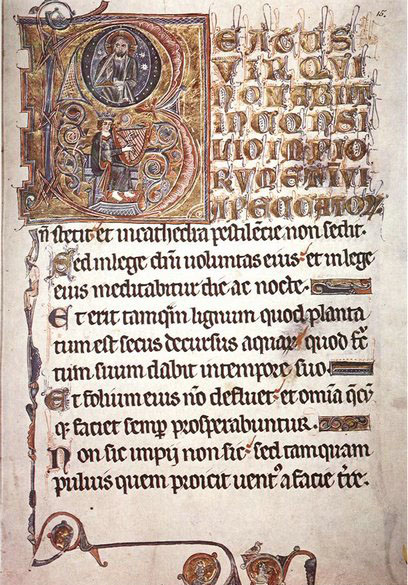 15.
B EATUS
VIR QVI
NON ABIIT
IN CONSI
LIO IMPIO
RVM ET IN VI
A PECCATOR
n̄ stetit et in cathedra pestilēcie non sedit.
Sed in lege dn̄i uoluntas eius et in lege
eius meditabitur die ac nocte.
Et erit tamq̄m lignum quod planta
tum est secus decursus aquar̄ quod fr̄c
tum suum dabit in tempore suo.
Et folium eius nō defluet et omīa q̄cū
q̨ faciet semp̄ prosperabuntur.
Non sic impij non sic sed tamquam
puluis quem proicit uentꝰ a facie tr̄e.